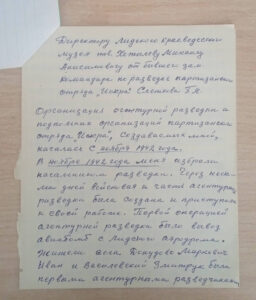 Директору Лидского краеведческого
музея тов. Хетагову Михаилу
Анисимовичу от бывшего зам
командира по разведке партизанского
отряда "Искра" Слесова Г.И.
Организация агентурной разведки и
подпольных организаций партизанского
отряда "Искра", создаваемых мной,
началась с ноября 1942 года.
В ноябре 1942 года меня избрали
начальником разведки. Через неско-
лько дней действовая и часть агентурной
разведки была создана и приступила
к своей работе. Первой операцией
агентурной разведки был вывоз
авиабомб с Лидского аэродрома.
Жители села Докудово Маркевич
Иван и Василевский Дмитрук были
первыми агентурными разведчиками,